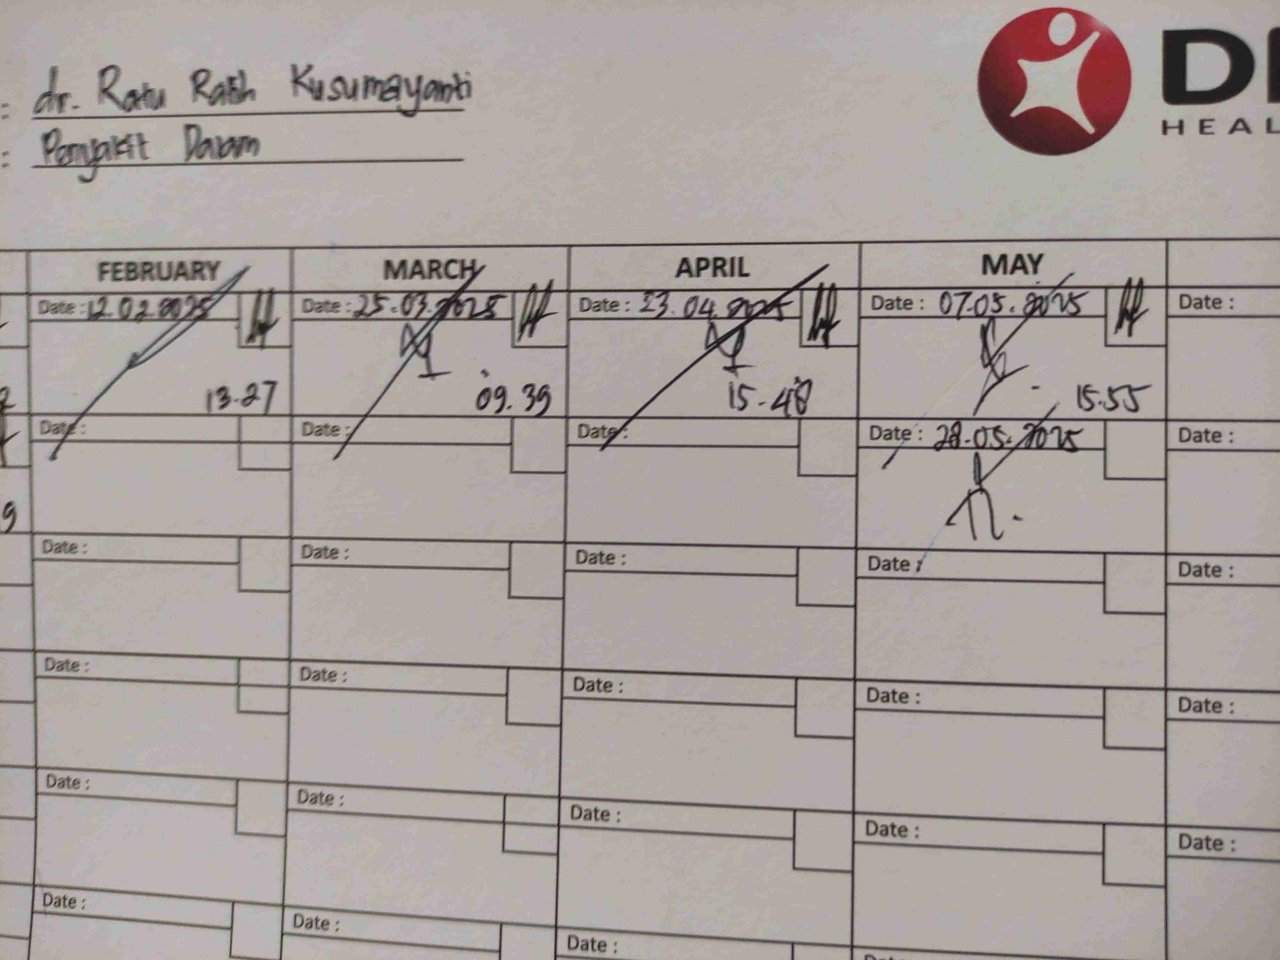 : dr. Ratu Ratih Kusumayanti
: Penyakit Dalam
HEAL
FEBRUARY MARCH APRIL MAY
Date : 12.02.2025 Date : 25.03.2025 Date : 23.04.2025 Date : 07.05.2025 Date :
13.27 09.39 15.48 15.55
Date : Date : Date : Date : 28.05.2025 Date :
9
Date : Date : Date : Date : Date :
Date : Date : Date : Date : Date :
Date : Date : Date : Date : Date :
Date : Date : Date :